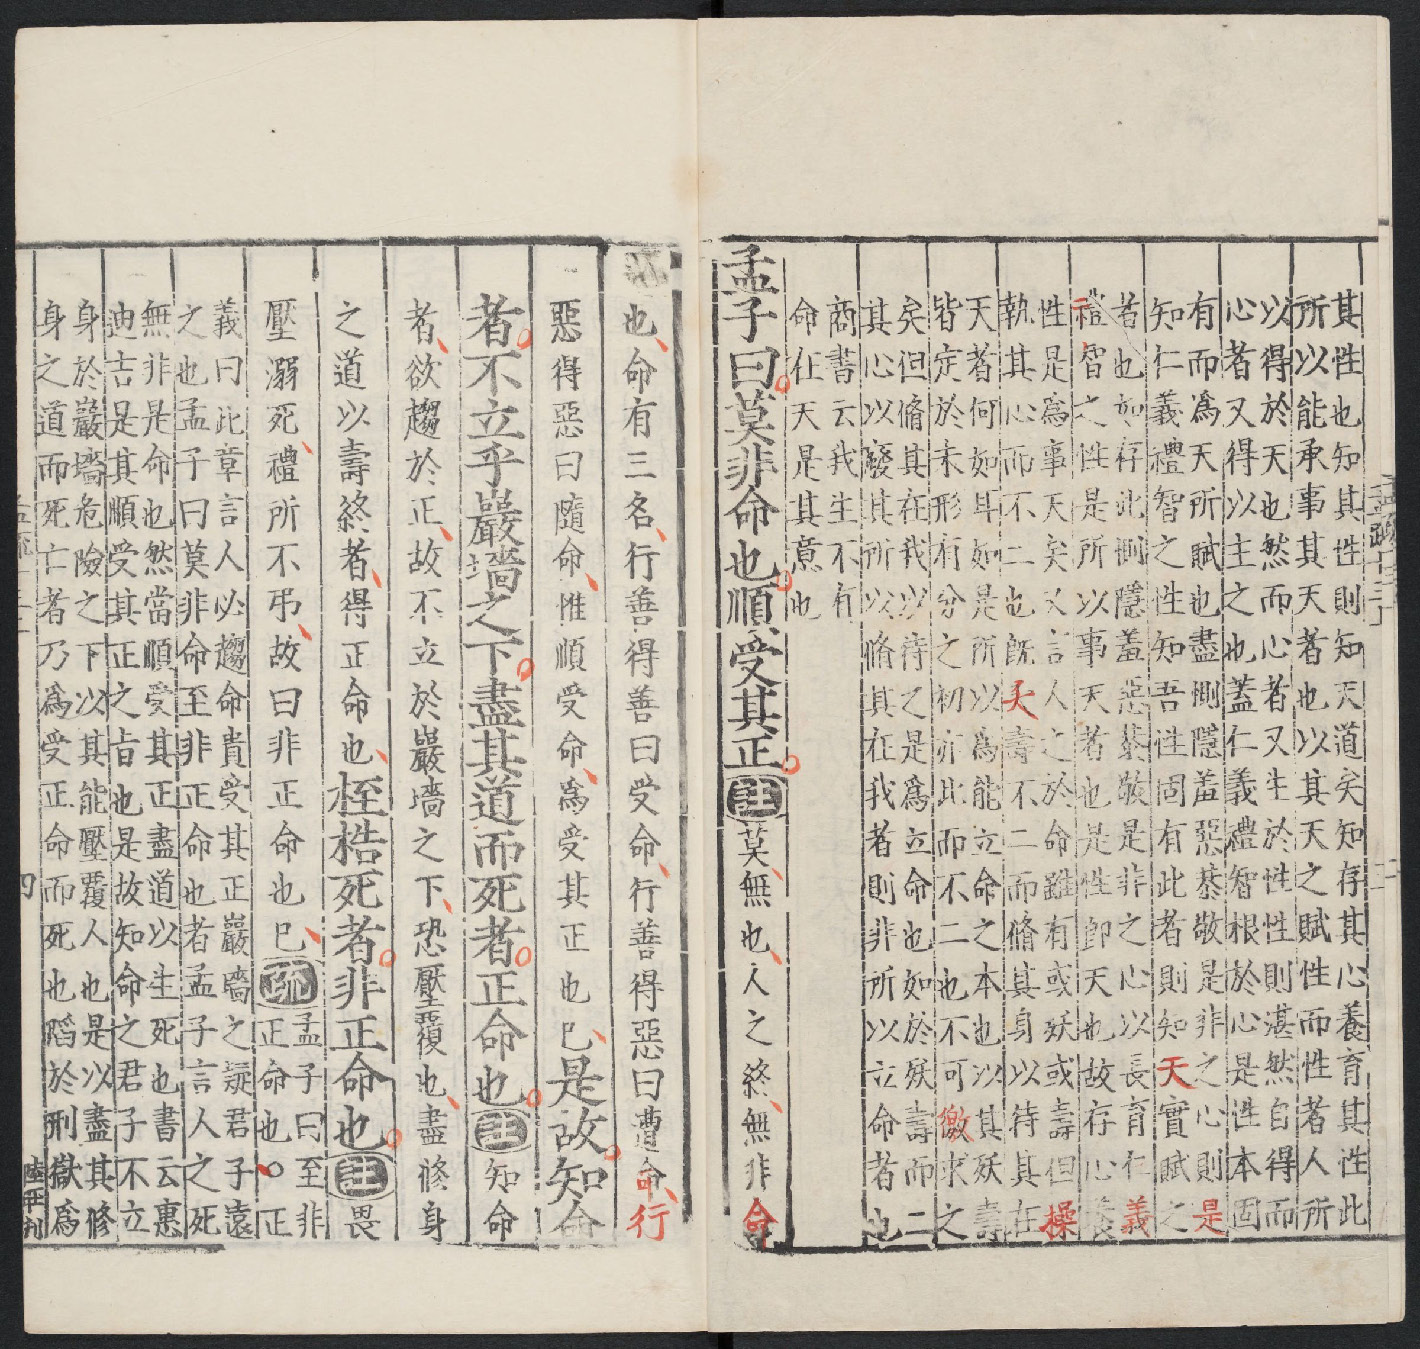 其性也知其性則知天道矣知存其心養育其性此
所以能承事其天者也以其天之賦性而性者人所
以得於天也然而心者又生於性性則湛然自得而
心者又得以主之也蓋仁義禮智根於心是性本固
有而為天所賦也盡惻隱羞惡恭敬是非之心則是
知仁義禮智之性知吾性固有此者則知天實賦之
者也如存此惻隱羞惡恭敬是非之心以長育仁義
禮智之性是所以事天者也是性即天也故存心養
性是為事天矣又言人之於命雖有或殀或壽但操
執其心而不二也旣夭壽不二而脩其身以待其在
天者何如耳如是所以為能立命之本也以其殀壽
皆定於未形有分之初亦此而不二也不可徼求之
矣但脩其在我以待之是為立命也如於殀壽而二
其心以廢其所以脩其在我者則非所以立命者也
商書云我生不有
命在天是其意也
孟子曰莫非命也順受其正註莫無也人之終無非命
也命有三名行善得善曰受命行善得惡曰遭命行
惡得惡曰隨命惟順受命為受其正也已是故知命
者不立乎巖墻之下盡其道而死者正命也註知命
者欲趨於正故不立於巖墻之下恐壓覆也盡修身
之道以壽終者得正命也桎梏死者非正命也註畏
壓溺死禮所不弔故曰非正命也已疏
孟子曰至非
正命也○正
義曰此章言人必趨命貴受其正巖牆之疑君子遠
之也孟子曰莫非命至非正命也者孟子言人之死
無非是命也然當順受其正盡道以生死也書云惠
迪吉是其順受其正之旨也是故知命之君子不立
身於巖墻危險之下以其能壓覆人也是以盡其修
身之道而死亡者乃為受正命而死也陷於刑獄為
孟疏十三
二
四
陸平刊